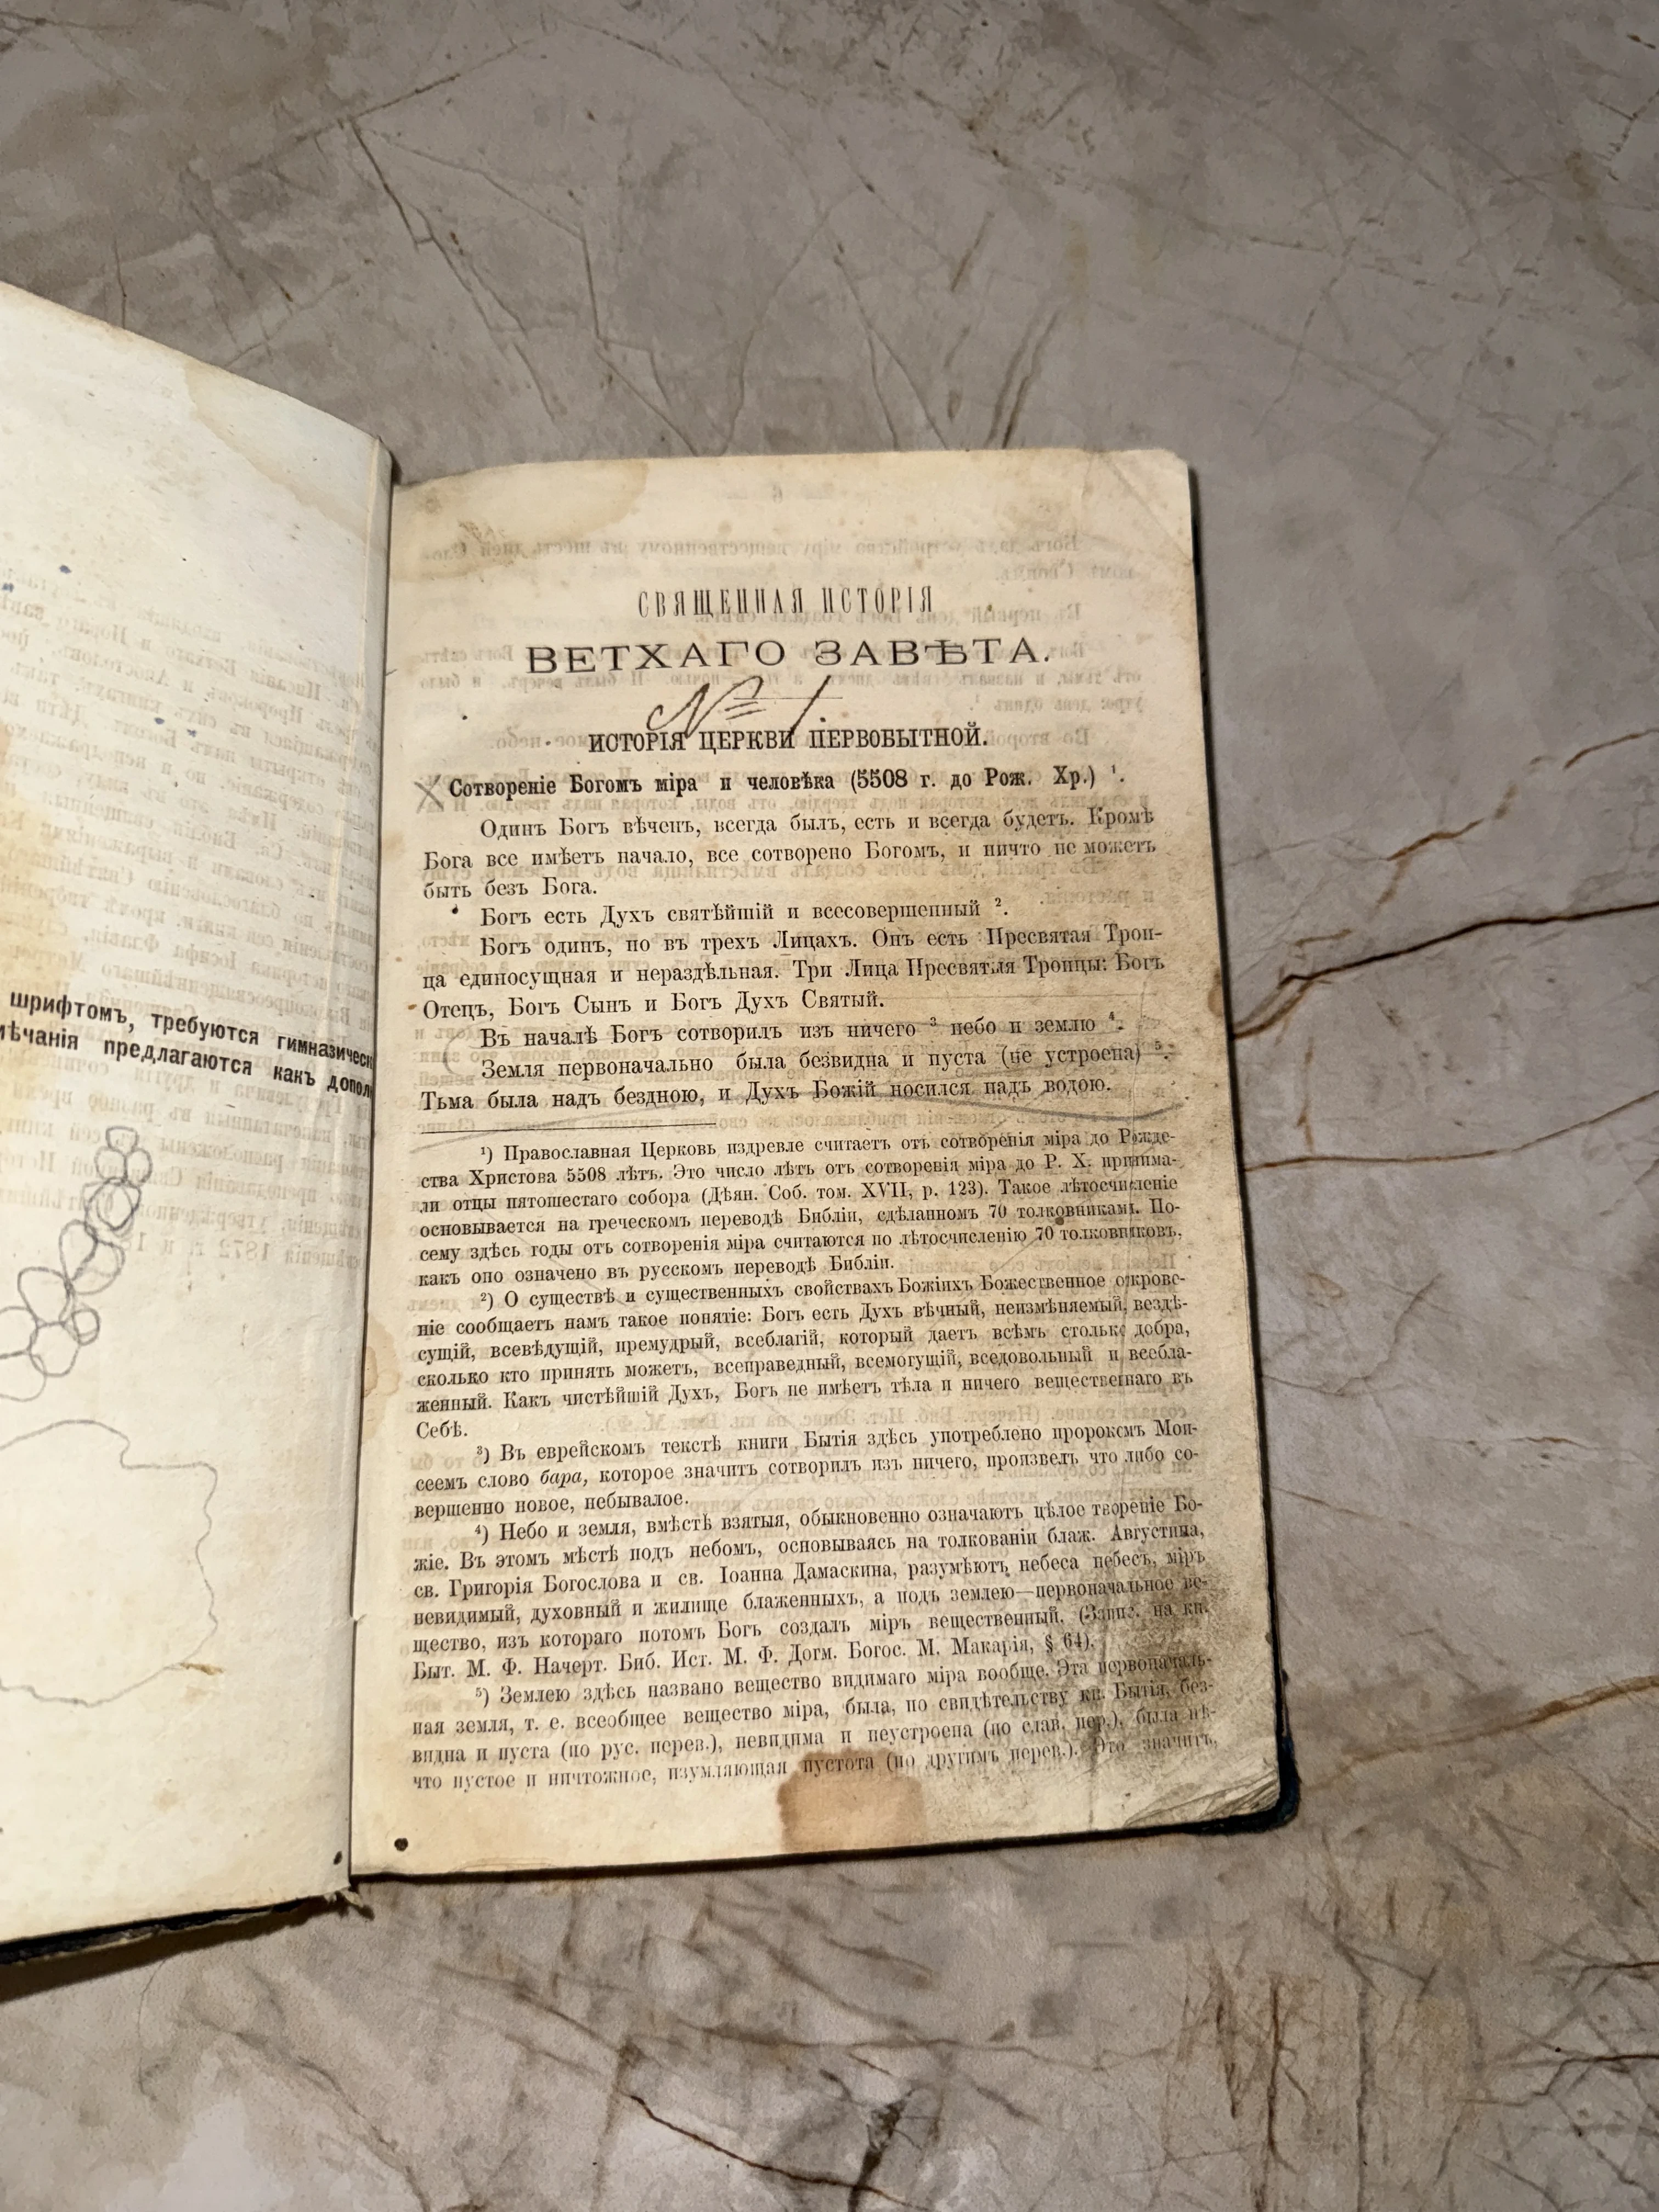 шрифтомъ, требуются гимназическ
мѣчанія предлагаются какъ допол
СВЯЩЕННАЯ ИСТОРІЯ
ВЕТХАГО ЗАВѢТА.
№ 1.
ИСТОРІЯ ЦЕРКВИ ПЕРВОБЫТНОЙ.
Сотвореніе Богомъ міра и человѣка (5508 г. до Рож. Хр.) ¹.
Одинъ Богъ вѣченъ, всегда былъ, есть и всегда будетъ. Кромѣ
Бога все имѣетъ начало, все сотворено Богомъ, и ничто не можетъ
быть безъ Бога.
Богъ есть Духъ святѣйшій и всесовершенный ².
Богъ одинъ, но въ трехъ Лицахъ. Онъ есть Пресвятая Трои-
ца единосущная и нераздѣльная. Три Лица Пресвятыя Троицы: Богъ
Отецъ, Богъ Сынъ и Богъ Духъ Святый.
Въ началѣ Богъ сотворилъ изъ ничего ³ небо и землю ⁴.
Земля первоначально была безвидна и пуста (не устроена) ⁵.
Тьма была надъ бездною, и Духъ Божій носился надъ водою.
¹) Православная Церковь издревле считаетъ отъ сотворенія міра до Рожде-
ства Христова 5508 лѣтъ. Это число лѣтъ отъ сотворенія міра до Р. Х. принима-
ли отцы пятошестаго собора (Дѣян. Соб. том. XVII, р. 123). Такое лѣтосчисленіе
основывается на греческомъ переводѣ Библіи, сдѣланномъ 70 толковниками. По-
сему здѣсь годы отъ сотворенія міра считаются по лѣтосчисленію 70 толковниковъ,
какъ оно означено въ русскомъ переводѣ Библіи.
²) О существѣ и существенныхъ свойствахъ Божіихъ Божественное открове-
ніе сообщаетъ намъ такое понятіе: Богъ есть Духъ вѣчный, неизмѣняемый, вездѣ-
сущій, всевѣдущій, премудрый, всеблагій, который даетъ всѣмъ столько добра,
сколько кто принять можетъ, всеправедный, всемогущій, вседовольный и всебла-
женный. Какъ чистѣйшій Духъ, Богъ не имѣетъ тѣла и ничего вещественнаго въ
Себѣ.
³) Въ еврейскомъ текстѣ книги Бытія здѣсь употреблено пророкомъ Мои-
сеемъ слово бара, которое значитъ сотворилъ изъ ничего, произвелъ что либо со-
вершенно новое, небывалое.
⁴) Небо и земля, вмѣстѣ взятыя, обыкновенно означаютъ цѣлое твореніе Бо-
жіе. Въ этомъ мѣстѣ подъ небомъ, основываясь на толкованіи блаж. Августина,
св. Григорія Богослова и св. Іоанна Дамаскина, разумѣютъ небеса небесъ, міръ
невидимый, духовный и жилище блаженныхъ, а подъ землею—первоначальное ве-
щество, изъ котораго потомъ Богъ создалъ міръ вещественный. (Запис. на кн.
Быт. М. Ф. Начерт. Биб. Ист. М. Ф. Догм. Богос. М. Макарія, § 64).
⁵) Землею здѣсь названо вещество видимаго міра вообще. Эта первоначаль-
ная земля, т. е. всеобщее вещество міра, была, по свидѣтельству кн. Бытія, без-
видна и пуста (по рус. перев.), невидима и неустроена (по слав. пер.), была нѣ-
что пустое и ничтожное, изумляющая пустота (по другимъ перев.). Это значитъ,